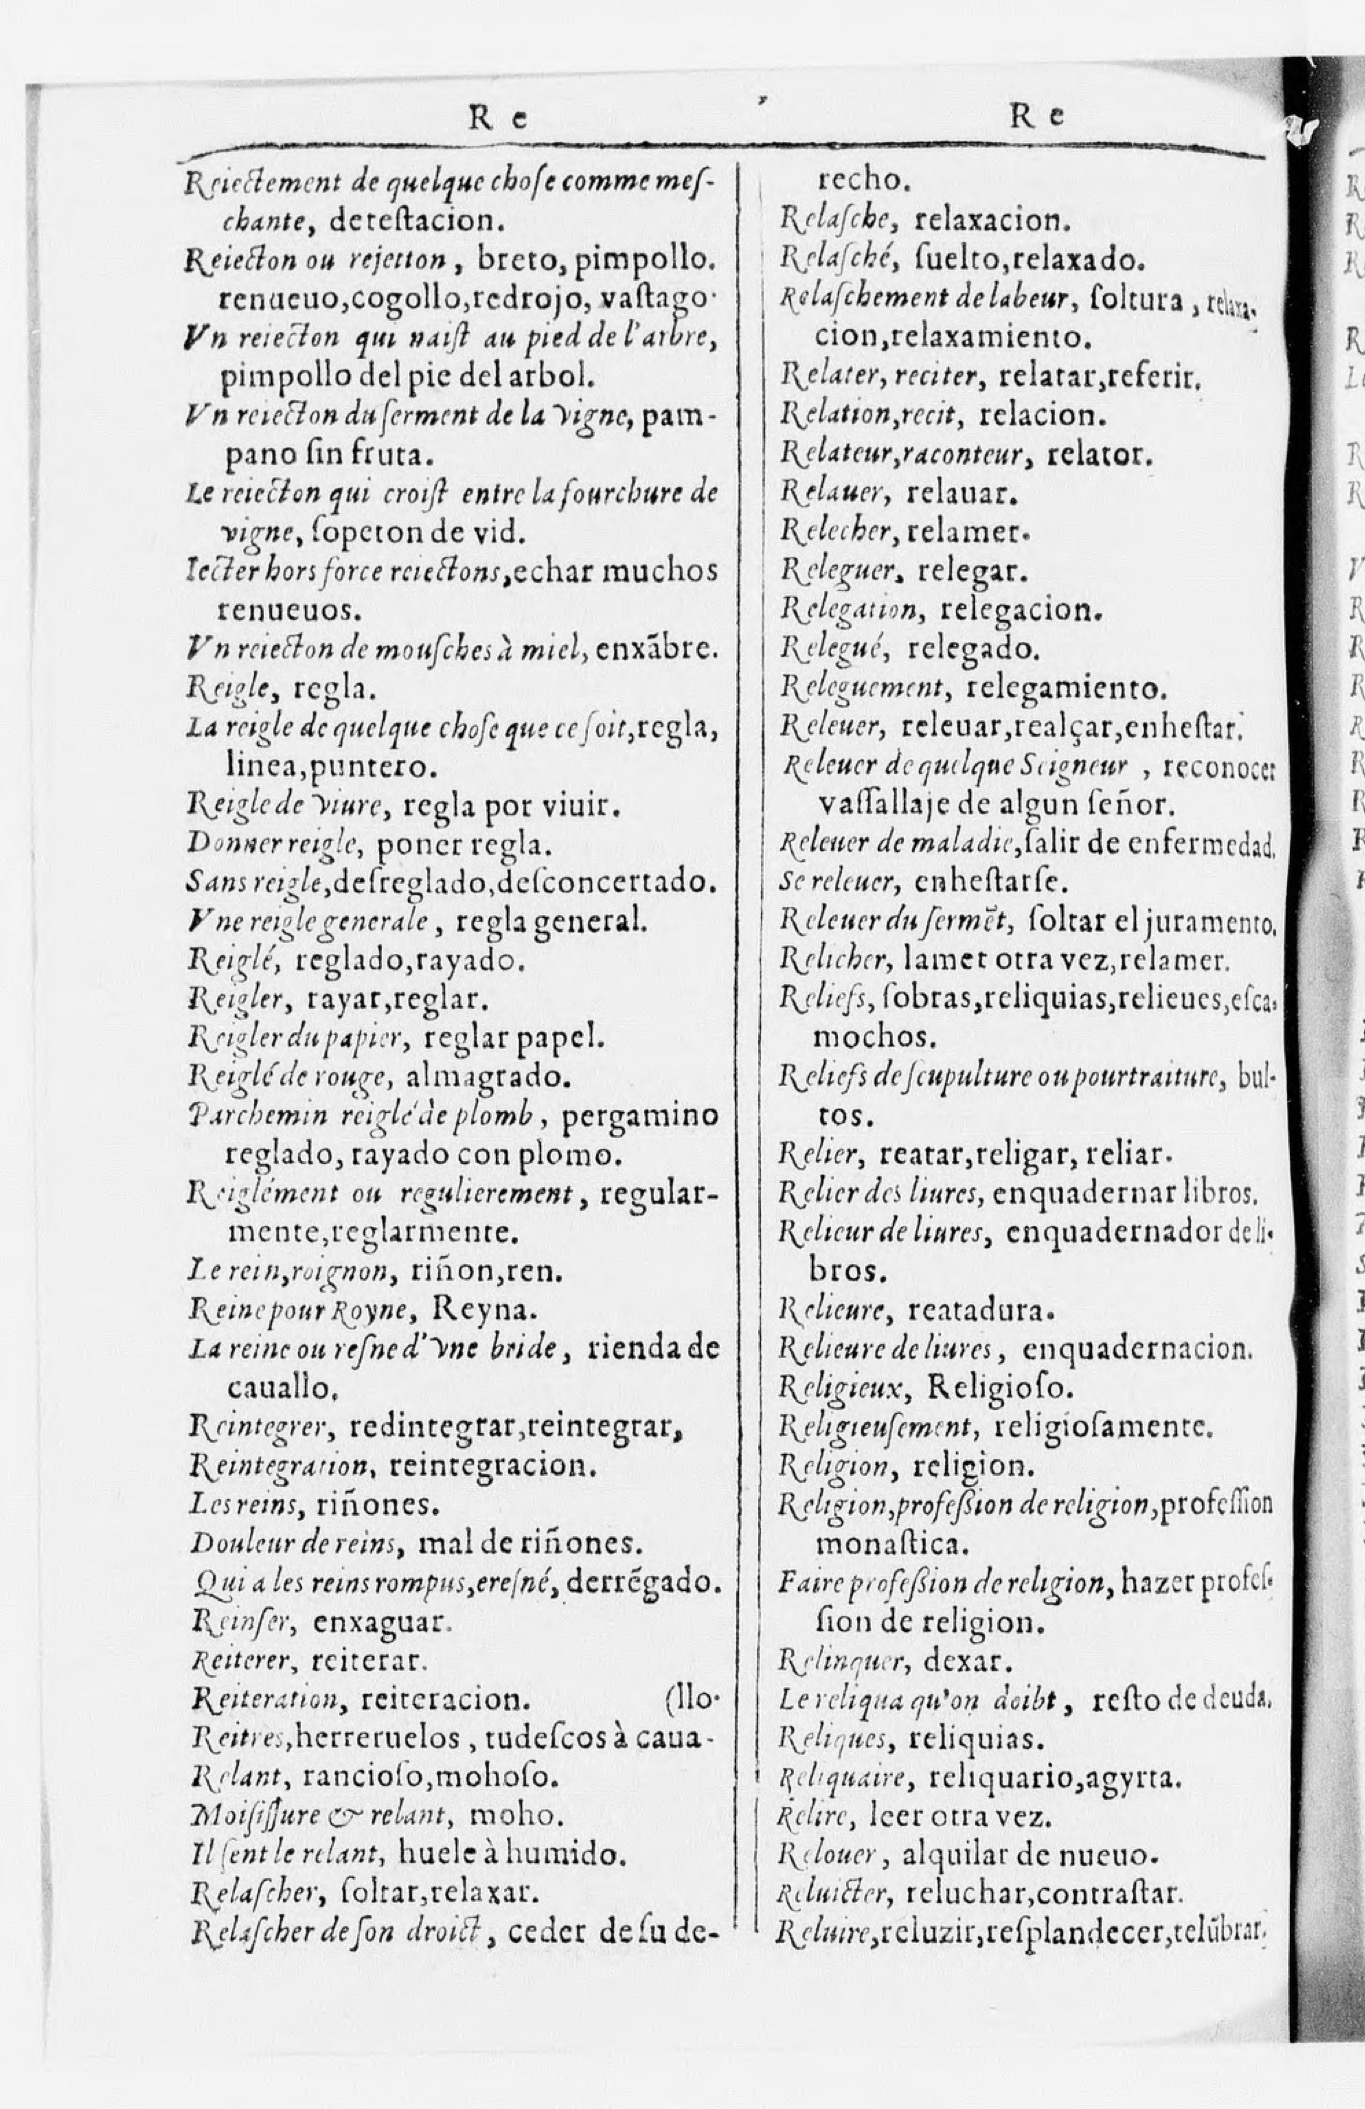 R e
Reiectement de quelque chose comme mes-
chante, detestacion.
Reiecton ou rejetton, breto, pimpollo.
renueuo, cogollo, redrojo, vastago.
Vn reiecton qui naist au pied de l'arbre,
pimpollo del pie del arbol.
Vn reiecton du serment de la vigne, pam-
pano sin fruta.
Le reiecton qui croist entre la fourchure de
vigne, sopeton de vid.
Iecter hors force reiectons, echar muchos
renueuos.
Vn reiecton de mousches à miel, enxãbre.
Reigle, regla.
La reigle de quelque chose que ce soit, regla,
linea, puntero.
Reigle de viure, regla por viuir.
Donner reigle, poner regla.
Sans reigle, desreglado, desconcertado.
Vne reigle generale, regla general.
Reiglé, reglado, rayado.
Reigler, rayar, reglar.
Reigler du papier, reglar papel.
Reiglé de rouge, almagrado.
Parchemin reiglé de plomb, pergamino
reglado, rayado con plomo.
Reiglément ou regulierement, regular-
mente, reglarmente.
Le rein, roignon, riñon, ren.
Reine pour Royne, Reyna.
La reine ou resne d'vne bride, rienda de
cauallo.
Reintegrer, redintegrar, reintegrar,
Reintegration, reintegracion.
Les reins, riñones.
Douleur de reins, mal de riñones.
Qui a les reins rompus, eresné, derrẽgado.
Reinser, enxaguar.
Reiterer, reiterar.
Reiteration, reiteracion. (llo.
Reitres, herreruelos, tudescos à caua-
Relant, rancioso, mohoso.
Moisissure & relant, moho.
Il sent le relant, huele à humido.
Relascher, soltar, relaxar.
Relascher de son droict, ceder de su de-
R e
recho.
Relasche, relaxacion.
Relasché, suelto, relaxado.
Relaschement de labeur, soltura, relaxa-
cion, relaxamiento.
Relater, reciter, relatar, referir.
Relation, recit, relacion.
Relateur, raconteur, relator.
Relauer, relauar.
Relecher, relamer.
Releguer, relegar.
Relegation, relegacion.
Relegué, relegado.
Releguement, relegamiento.
Releuer, releuar, realçar, enhestar.
Releuer de quelque Seigneur, reconocer
vassallaje de algun señor.
Releuer de maladie, salir de enfermedad.
Se releuer, enhestarse.
Releuer du sermẽt, soltar el juramento.
Relicher, lamer otra vez, relamer.
Reliefs, sobras, reliquias, relieues, esca-
mochos.
Reliefs de scupulture ou pourtraiture, bul-
tos.
Relier, reatar, religar, reliar.
Relier des liures, enquadernar libros.
Relieur de liures, enquadernador de li-
bros.
Relieure, reatadura.
Relieure de liures, enquadernacion.
Religieux, Religioso.
Religieusement, religiosamente.
Religion, religion.
Religion, profession de religion, profession
monastica.
Faire profession de religion, hazer profes-
sion de religion.
Relinquer, dexar.
Le reliqua qu'on doibt, resto de deuda.
Reliques, reliquias.
Reliquaire, reliquario, agyrta.
Relire, leer otra vez.
Relouer, alquilar de nueuo.
Reluicter, reluchar, contrastar.
Reluire, reluzir, resplandecer, relũbrar.